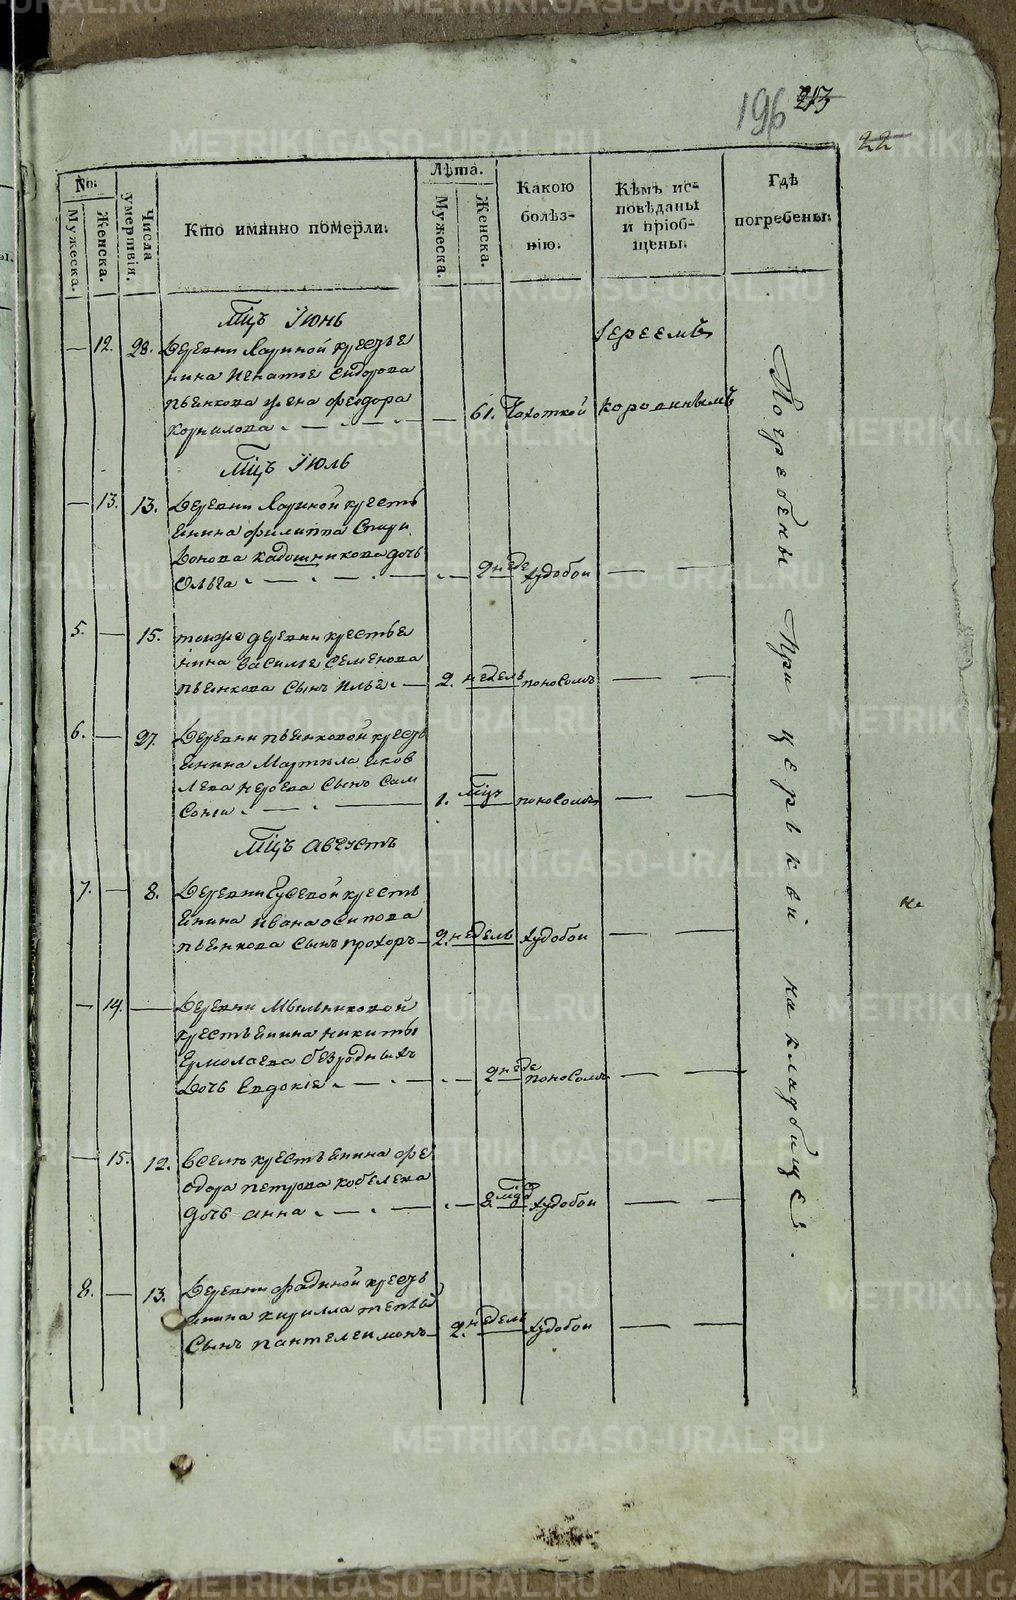 196 213
22
№:
Мужеска.
Женска.
Числа умертвія.
Кто имянно померли.
Лѣта.
Мужеска.
Женска.
Какою болѣз-
нію.
Кѣмъ ис-
повѣданы
и пріоб-
щены.
Гдѣ
погребены.
Мцъ Іюнь
12. 28. Деревни Лариной крестья
нина Игнатья Сидорова
Пьянкова жена Феодора
Корнилова 61. Чахоткой
Іереемъ
Мцъ Іюль
13. 13. Деревни Лариной кресть
янина Филиппа Спири
донова Кадошникова дочь
Ольга 2 неде худобои
5. 15. тояже деревни крестья
нина Василья Семенова
Пьянкова сынъ Илья 2. недель поносомъ
6. 27. Деревни Пьянковой кресть
янина Мартына Яков
лева сынъ Сам
сонъ 1. Мцъ поносомъ
Мцъ Августъ
7. 8. Деревни Гусевой кресть
янина Ивана Осипова
Пьянкова сынъ Прохоръ 2. недель худобои
14. Деревни Мыльниковой
крестьянина Никиты
Ермолаева Безродныхъ
дочь Евдокія 2 неде поносомъ
15. 12. крестьянина Фе
одора Петрова Кобелева
дочь Анна 8. худобои
8. 13. Деревни Фадиной кресть
янина Кирилла
сынъ Пантелеимонъ 2. недель худобои
Погребены При церькви на кладбище.
METRIKI.GASO-URAL.RU